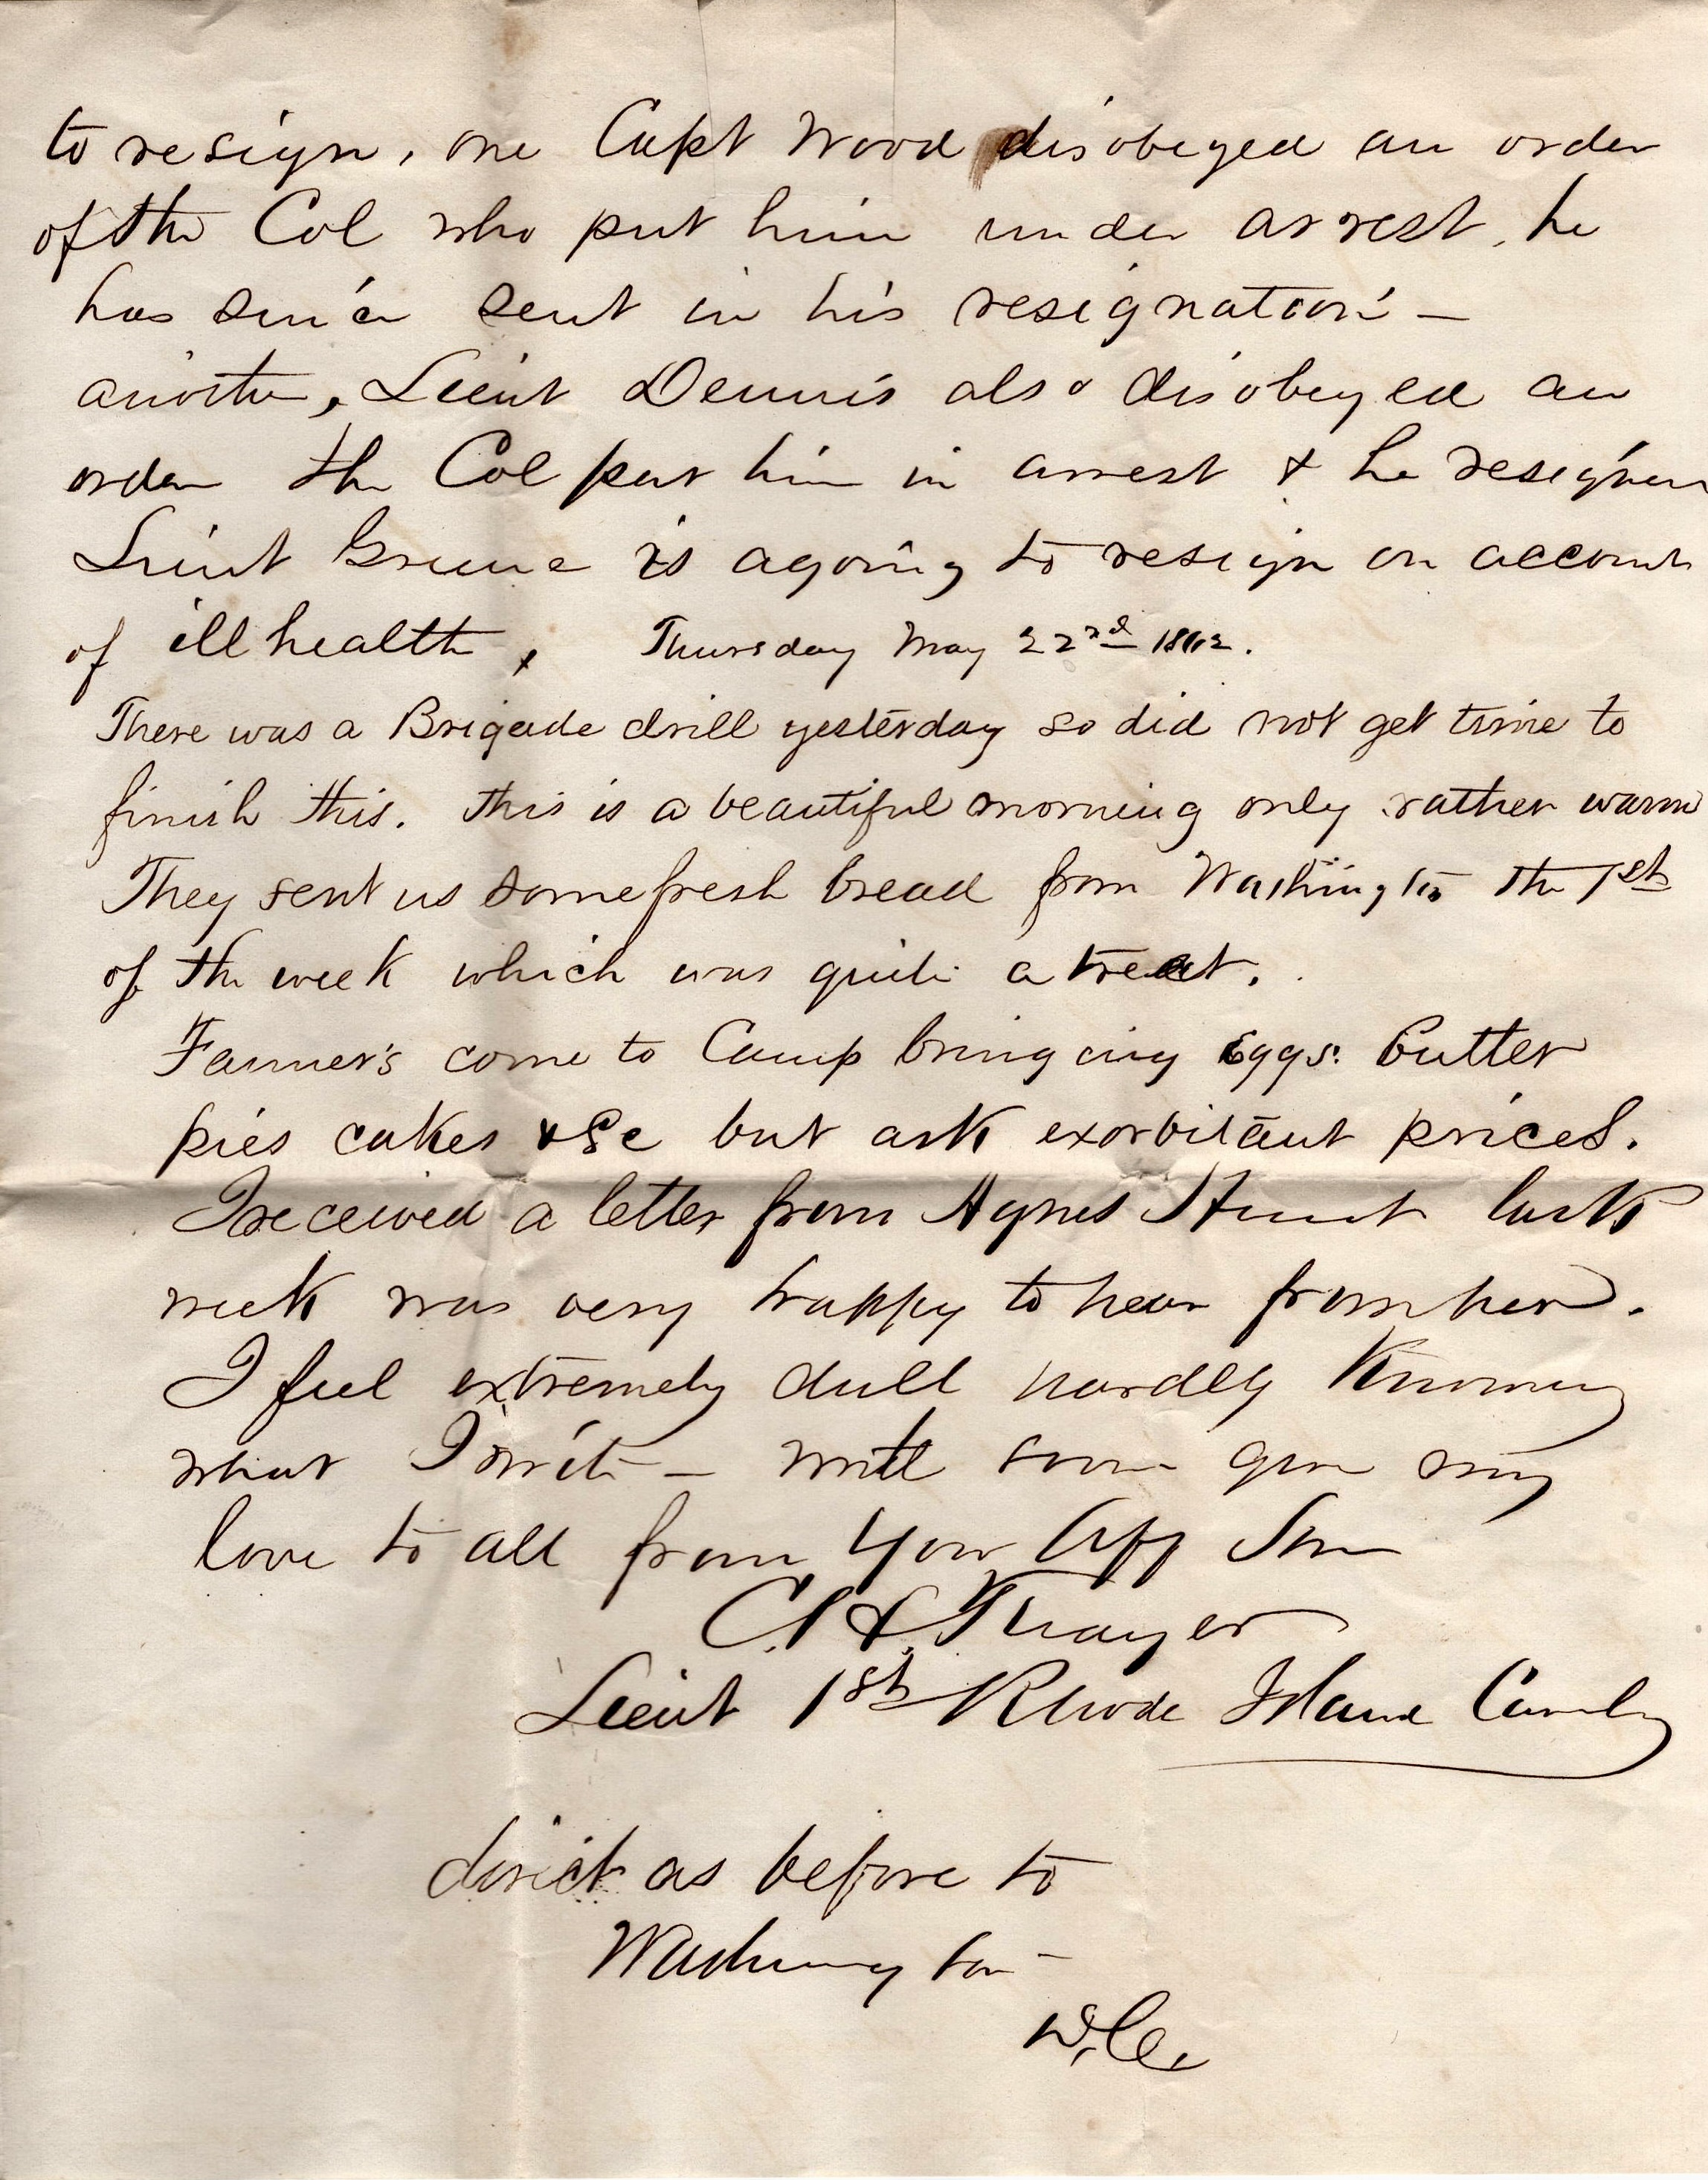 to resign, one Capt Wood disobeyed an order
of the Col who put him under arrest, he
has since sent in his resignation –
another, Lieut Dennis also disobeyed an
order the Col put him in arrest & he resigned
Lieut Greene is agoing to resign on account
of ill health, Thursday May 22nd 1862.
There was a Brigade drill yesterday so did not get time to
finish this. This is a beautiful morning only rather warm
They sent us some fresh bread from Washington the 1st
of the week which was quite a treat.
Farmer's come to Camp bringing Eggs. butter
pies cakes &c but ask exorbitant prices.
I received a letter from Agnes Hunt last
week was very happy to hear from her.
I feel extremely dull hardly knowing
what I write – will soon give my
love to all from Your Aff Son
Thayer
Lieut 1st Rhode Island Cavalry
direct as before to
Washington –
D.C.